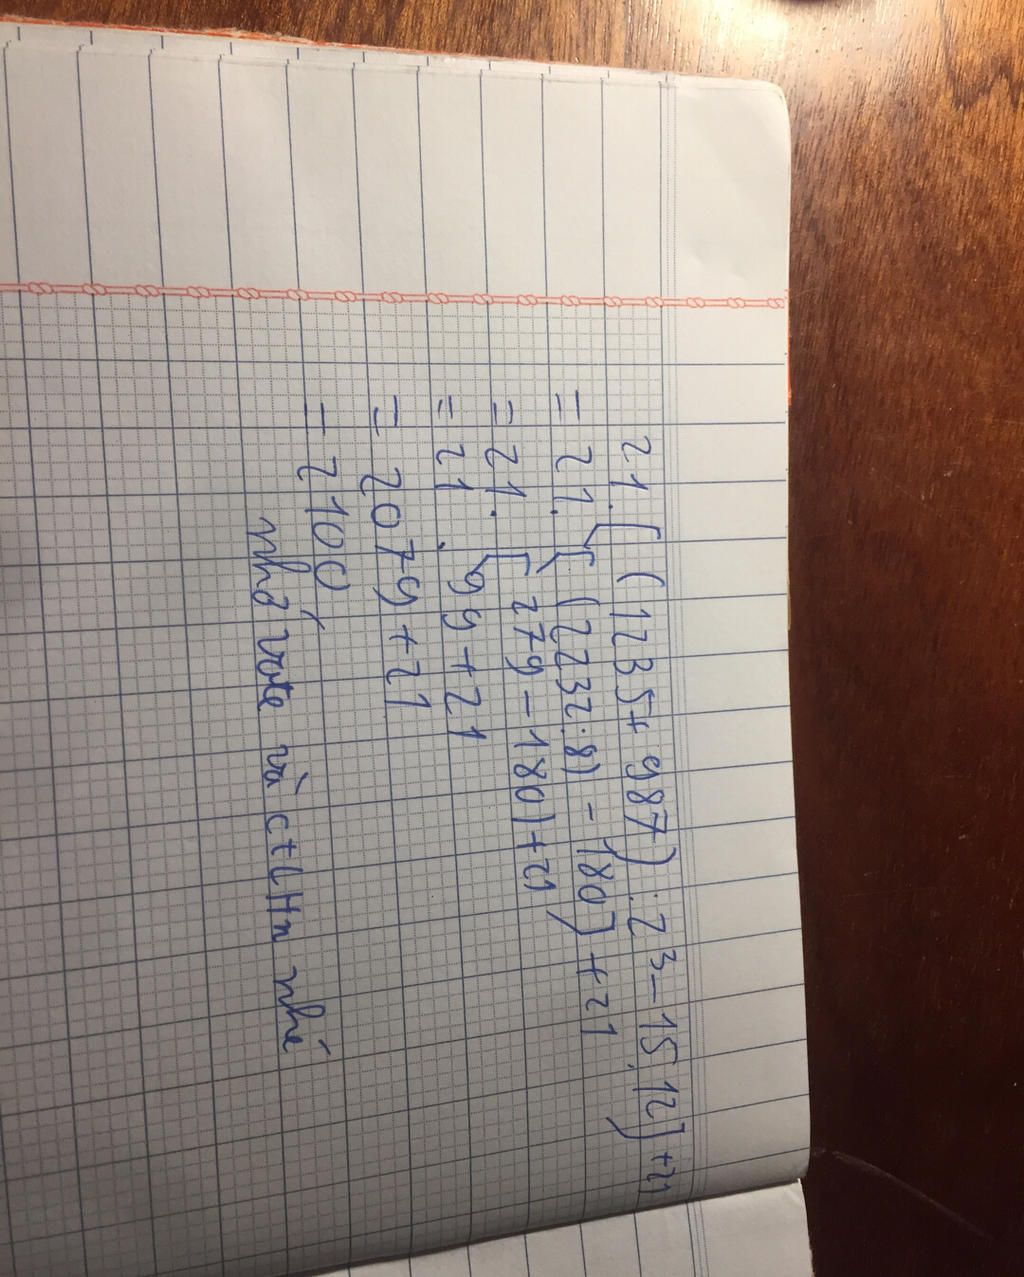 21.[(1235+987):23-15.12]+21
=21.[(2232:8)-180]+21
=21.[279-180)+21
=21.99+21
=2079+21
=2100
nhớ vote và ctlHn nhé